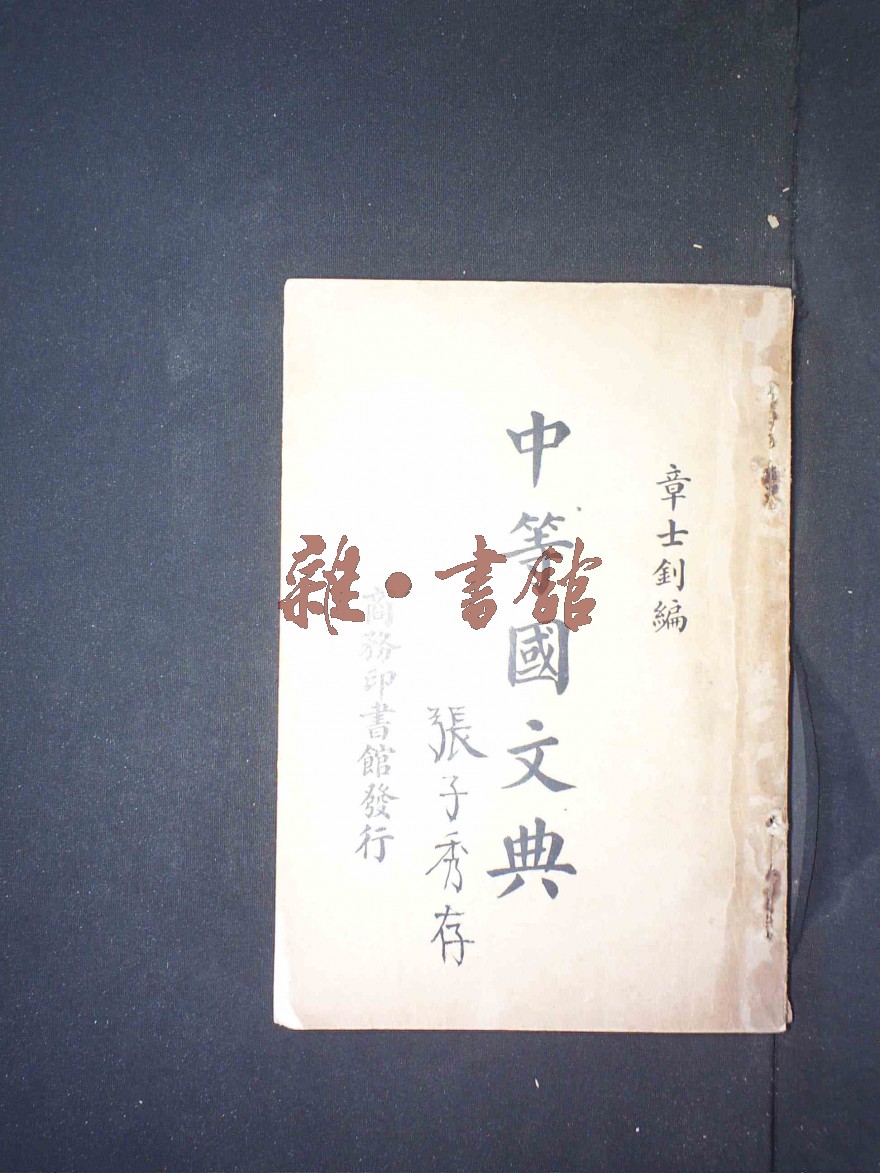 章士釗編
中等國文典
張子秀存
商務印書館發行
雜·書館